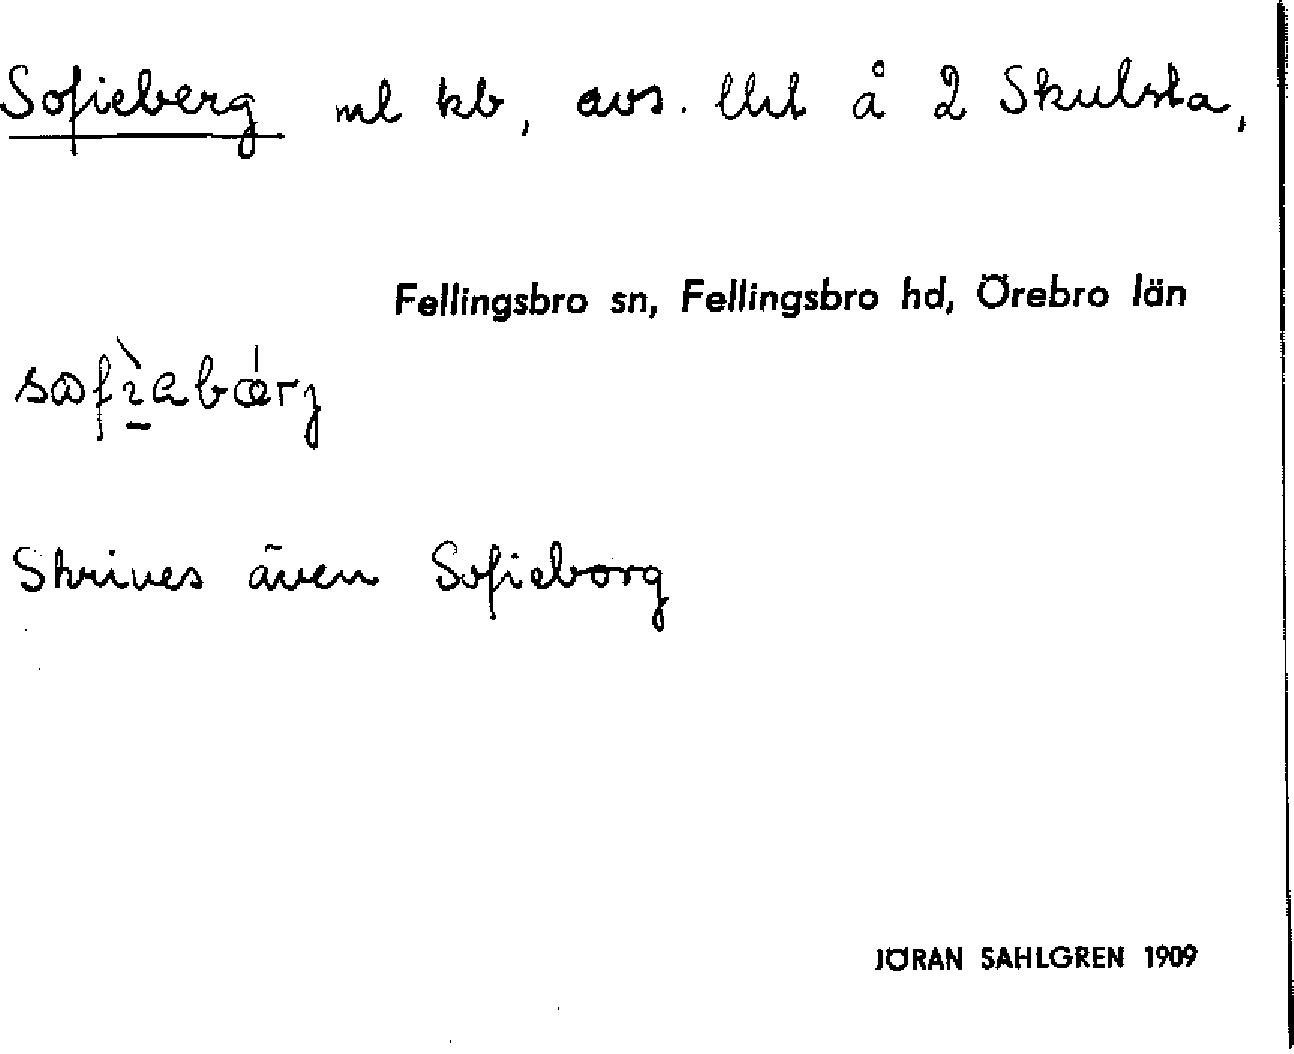 Sofieberg ml kb, avs. lht å 2 Skulsta,
Fellingsbro sn, Fellingsbro hd, Örebro län
Skrives även Sofieborg
JÖRAN SAHLGREN 1909